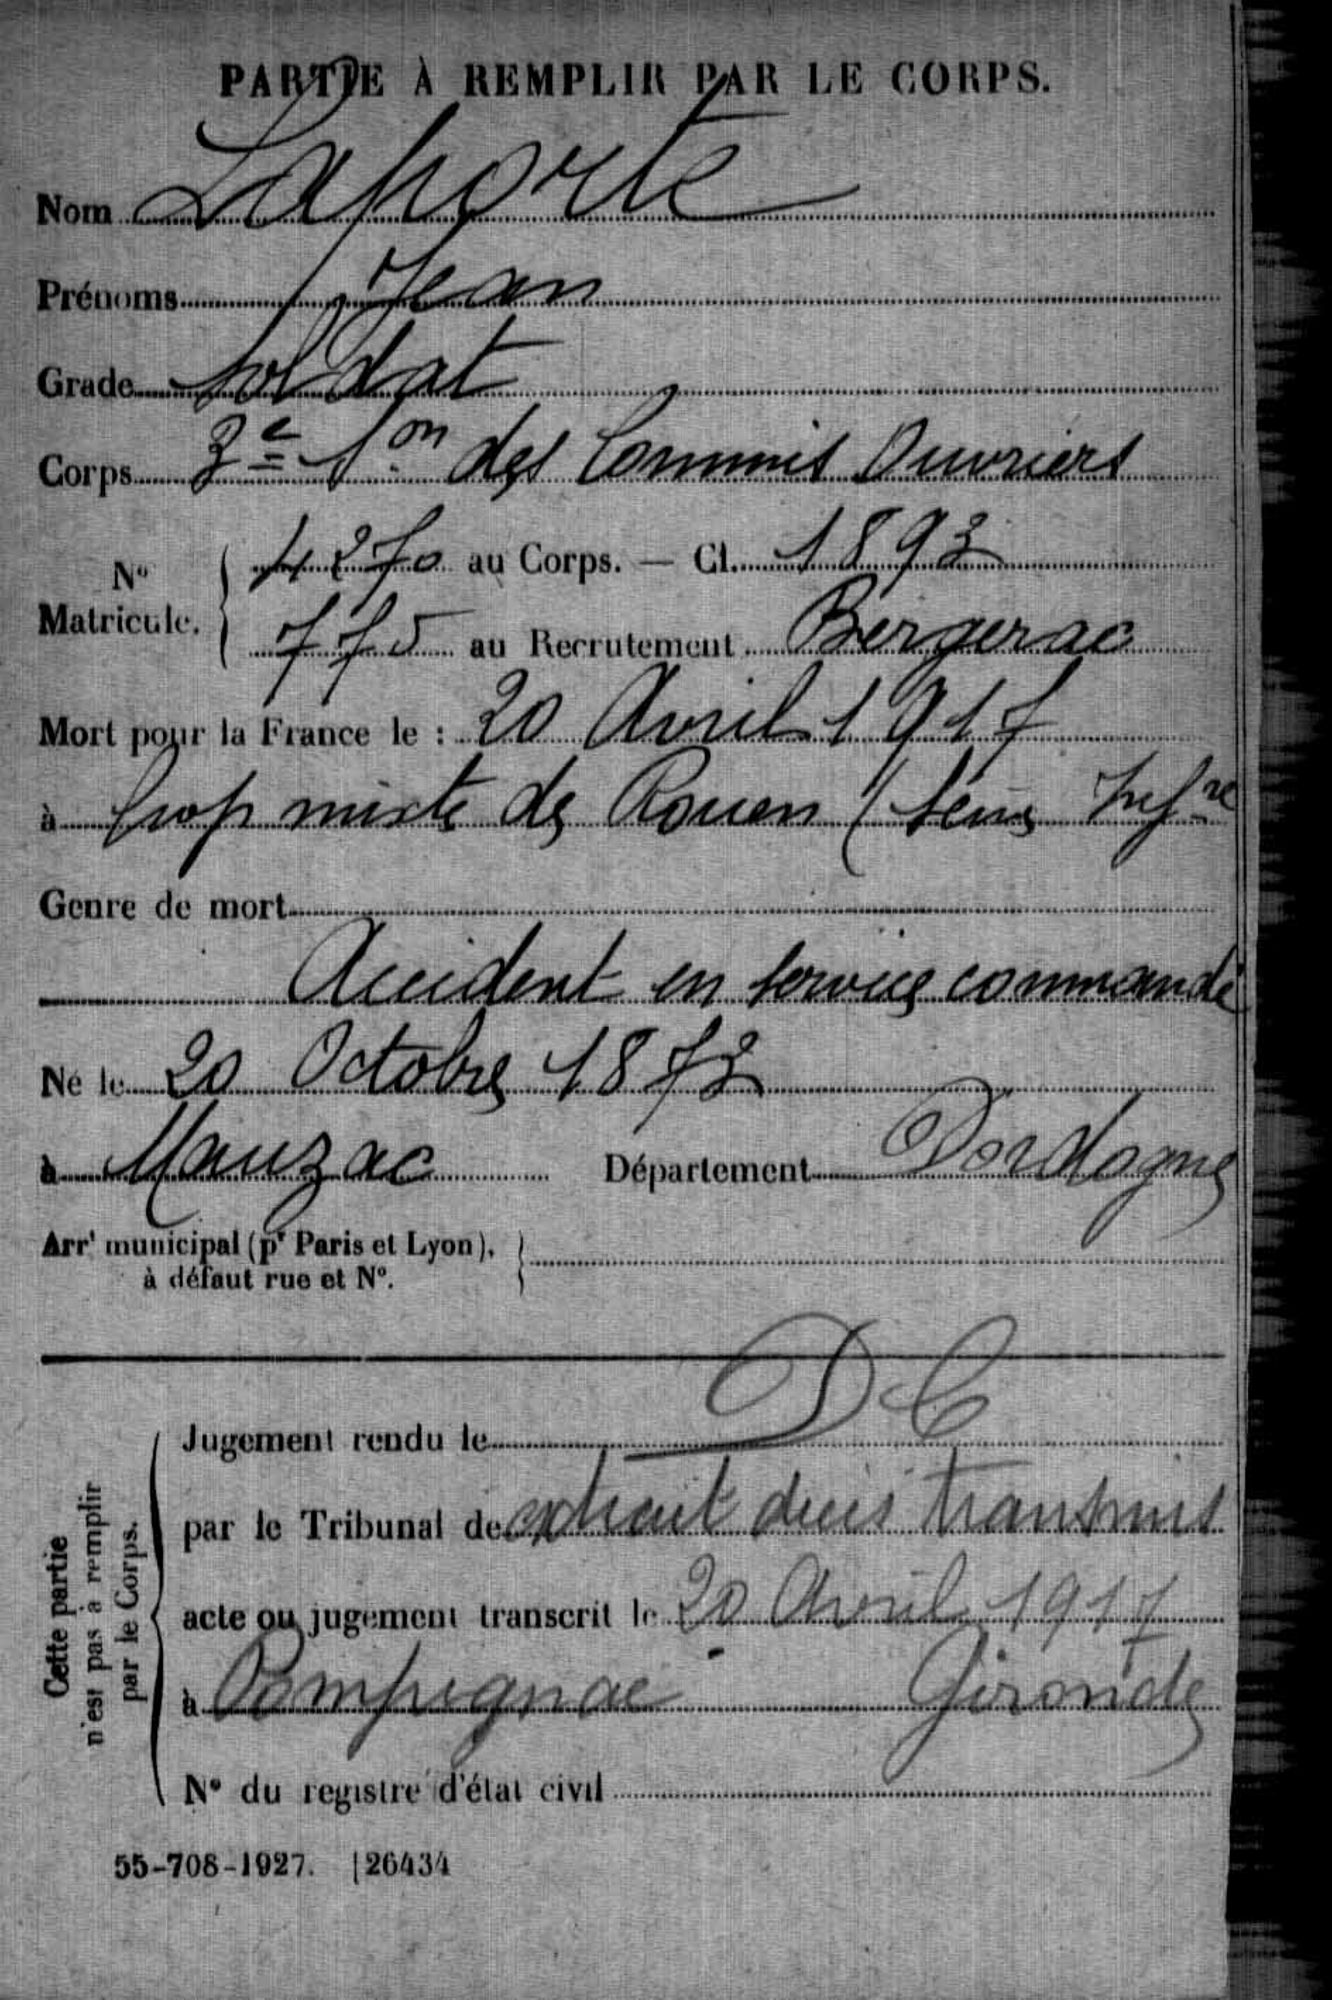 PARTIE À REMPLIR PAR LE CORPS.
Nom Laporte
Prénoms Jean
Grade Soldat
Corps 3e Son des Commis Ouvriers
No Matricule. 4270 au Corps. — Cl. 1893
775 au Recrutement Bergerac
Mort pour la France le : 20 Avril 1917
à hop mixte de Rouen (Seine Infre
Genre de mort
Accident en service commandé
Né le 20 Octobre 1873
à Mauzac Département Dordogne
Arrt municipal (pr Paris et Lyon),
à défaut rue et No.
DC
Cette partie
n'est pas à remplir
par le Corps.
Jugement rendu le
par le Tribunal de extrait décès transmis
acte ou jugement transcrit le 20 Avril 1917
à Pompignac Gironde
No du registre d'état civil
55-708-1927. [26434